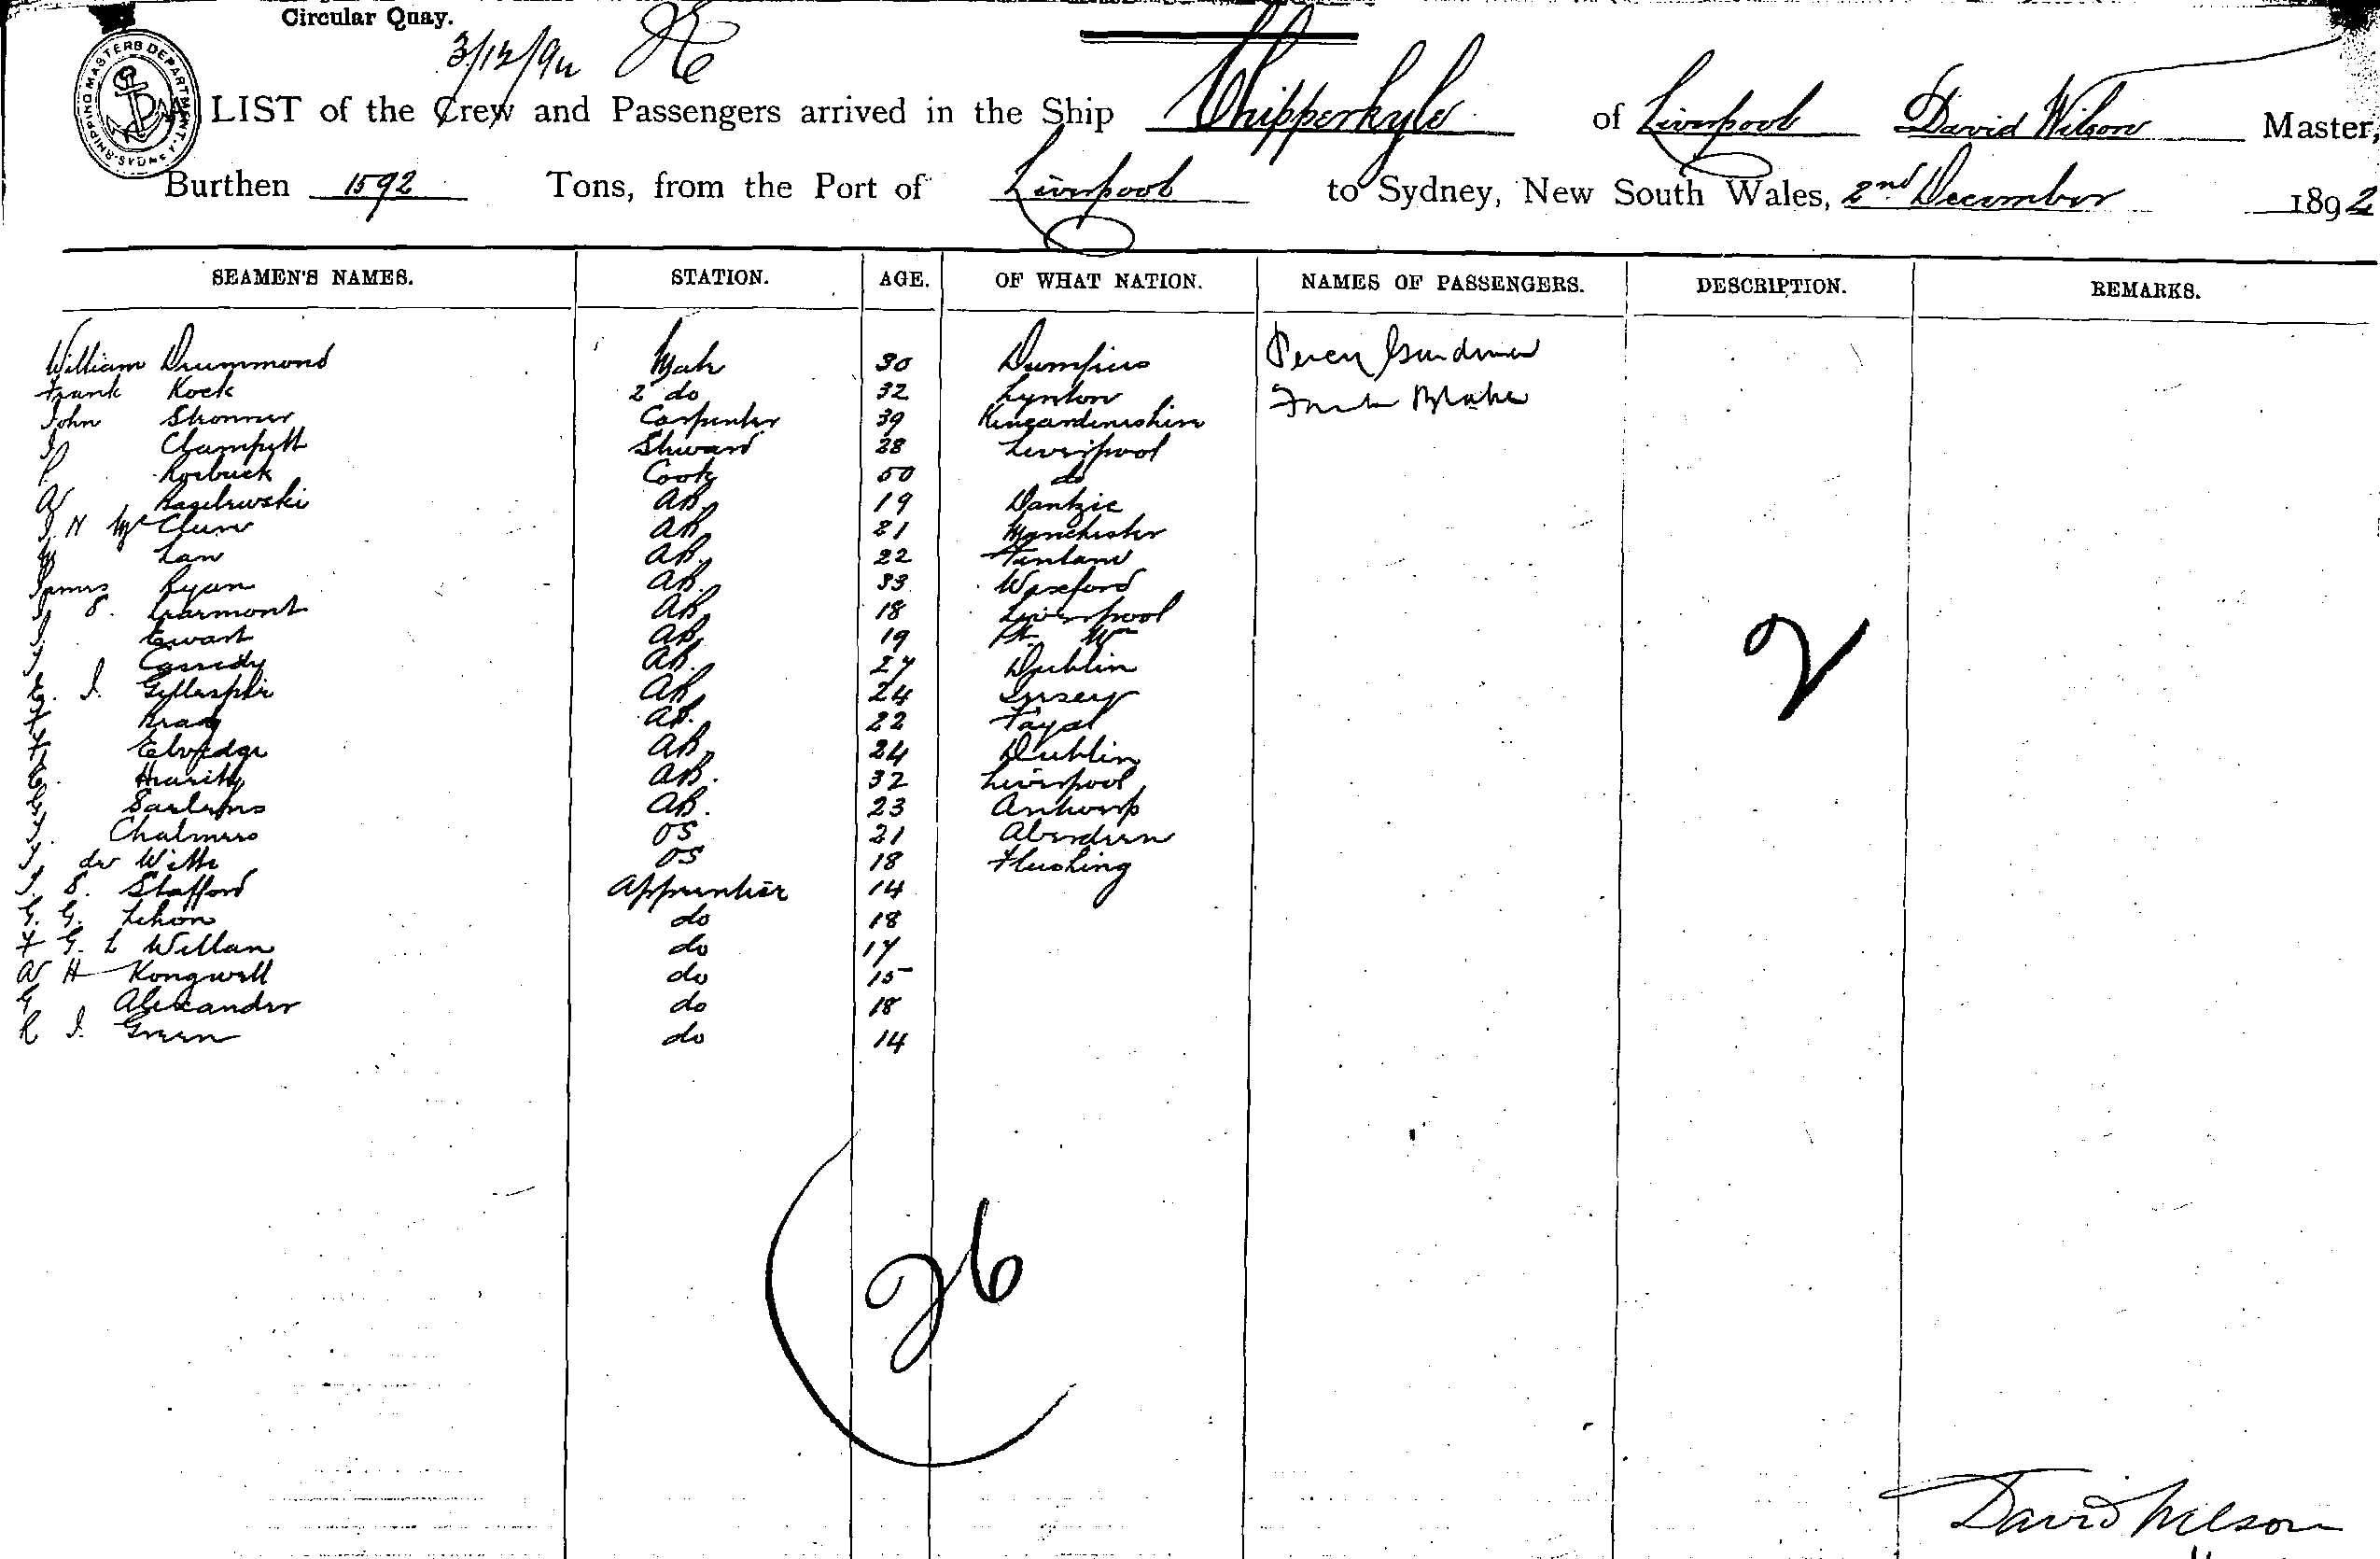 Circular Quay.
3/12/92
SHIPPING MASTERS DEPARTMENT. SYDNEY
A LIST of the Crew and Passengers arrived in the Ship Whipperkyle of Liverpool David Wilson Master,
Burthen 1592 Tons, from the Port of Liverpool to Sydney, New South Wales, 2nd December 1892
SEAMEN'S NAMES. STATION. AGE. OF WHAT NATION. NAMES OF PASSENGERS. DESCRIPTION. REMARKS.
William Drummond Mate 30 Dumfries Percy
Frank Kock 2 do 32 Lynton Blake
John Stronner Carpenter 39 Kincardineshire
J Clampett Steward 28 Liverpool
P. Roebuck Cook 50 do
W AB 19 Dantzic
J N McClure AB 21 Manchester
M Law AB 22 Finland
James Ryan AB 33 Wexford
J S. AB 18 Liverpool
J. Ewart AB 19
J Cassidy AB. 27 Dublin
E. J. Gillespie AB 24 Jersey
F AB. 22 Fayal
F Elvidge AB 24 Dublin
E. AB. 32 Liverpool
G AB. 23 Antwerp
J. Chalmers OS 21 Aberdeen
J. de Witte OS 18 Flushing
J. S. Stafford Apprentice 14
G. G. do 18
F G. L Willan do 17
W H Kongwell do 15
G Alexander do 18
R J. Green do 14
2
26
David Wilson